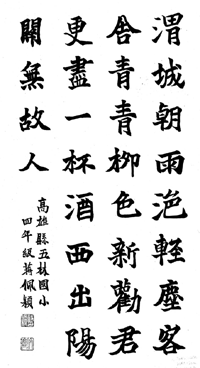 渭城朝雨浥輕塵客
舍青青柳色新勸君
更盡一杯酒西出陽
關無故人
高雄縣五林國小
四年級蔣佩穎